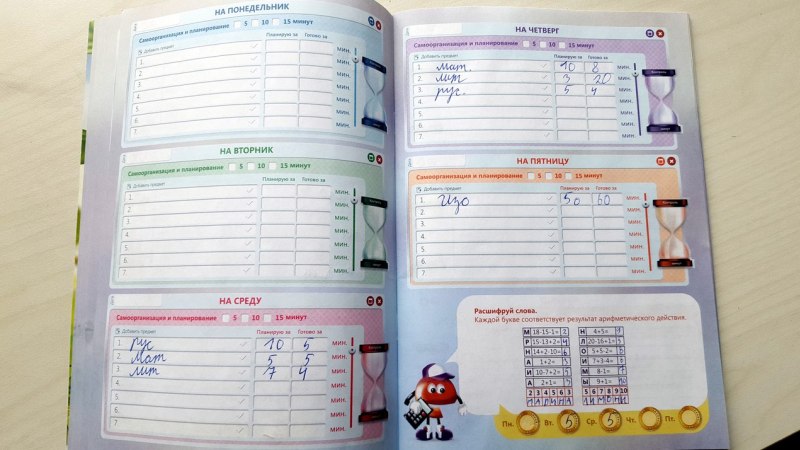 НА ПОНЕДЕЛЬНИК
Самоорганизация и планирование 5 10 15 минут
Добавить предмет Планирую за Готово за
1. мин.
2. мин.
3. мин.
4. мин.
5. мин.
6. мин.
7. мин.
НА ВТОРНИК
Самоорганизация и планирование 5 10 15 минут
Добавить предмет Планирую за Готово за
1. мин.
2. мин.
3. мин.
4. мин.
5. мин.
6. мин.
7. мин.
НА СРЕДУ
Самоорганизация и планирование 5 10 15 минут
Добавить предмет Планирую за Готово за
1. рус 10 5 мин.
2. мат 5 5 мин.
3. лит 7 4 мин.
4. мин.
5. мин.
6. мин.
7. мин.
НА ЧЕТВЕРГ
Самоорганизация и планирование 5 10 15 минут
Добавить предмет Планирую за Готово за
1. мат. 10 8 мин.
2. лит 3 20 мин.
3. рус. 5 4 мин.
4. мин.
5. мин.
6. мин.
7. мин.
НА ПЯТНИЦУ
Самоорганизация и планирование 5 10 15 минут
Добавить предмет Планирую за Готово за
1. Изо 50 60 мин.
2. мин.
3. мин.
4. мин.
5. мин.
6. мин.
7. мин.
Расшифруй слова.
Каждой букве соответствует результат арифметического действия.
М 18-15-1= 2 Н 4+5= 9
Р 15-13+2= 4 Л 20-16+1= 5
Н 14+2-10= 6 О 5+5-2= 8
А 1+2= 3 И 7+3-4= 6
И 10-7+2= 5 М 8-1= 7
А 2+1= 3 Ы 9+1= 10
2 3 4 5 6 3 5 6 7 8 9 10
МАРИНА ЛИМОНЫ
Пн. Вт. 5 Ср. 5 Чт. Пт.